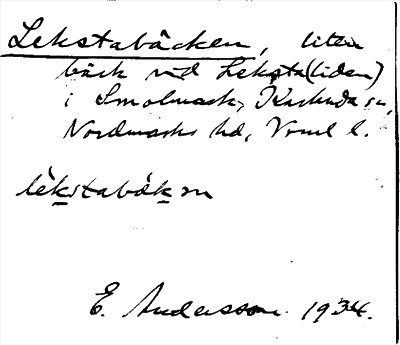 Lekstabäcken, liten
bäck vid Leksta(liden)
i Smolmark, Karlanda sn,
Nordmarks hd, Vrml l.
lèkstabäkən
E. Andersson 1934.